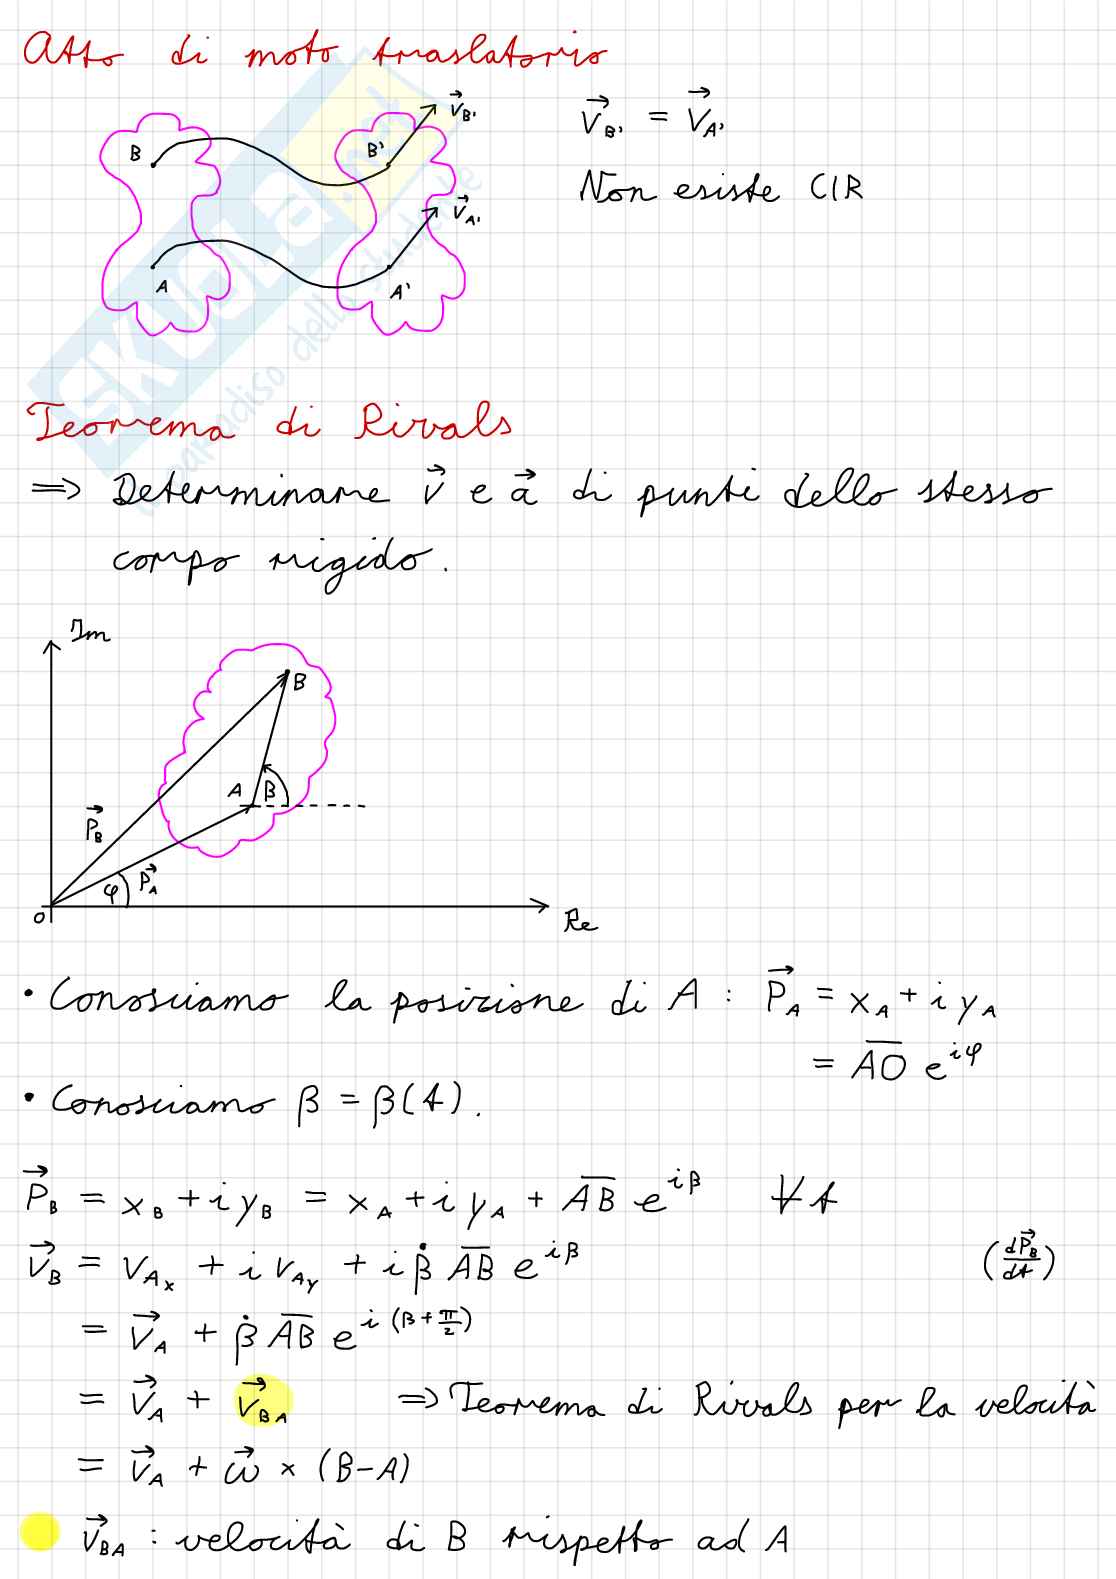 Atto di moto traslatorio
B B' A A'
v⃗_B'
v⃗_A'
v⃗_B' = v⃗_A'
Non esiste CIR
SKUOLA.net
il paradiso dello studente
Teorema di Rivals
⇒ Determinare v⃗ e a⃗ di punti dello stesso
corpo rigido.
Im
B
A β
P⃗_B
φ P⃗_A
O
Re
• Conosciamo la posizione di A : P⃗_A = x_A + i y_A
= \overline{AO} e^{iφ}
• Conosciamo β = β(t).
P⃗_B = x_B + i y_B = x_A + i y_A + \overline{AB} e^{iβ} ∀t
v⃗_B = v_{Ax} + i v_{Ay} + i β̇ \overline{AB} e^{iβ} (dP⃗_B/dt)
= v⃗_A + β̇ \overline{AB} e^{i(β+π/2)}
= v⃗_A + v⃗_{BA} ⇒ Teorema di Rivals per la velocità
= v⃗_A + ω⃗ × (B-A)
v⃗_{BA} : velocità di B rispetto ad A